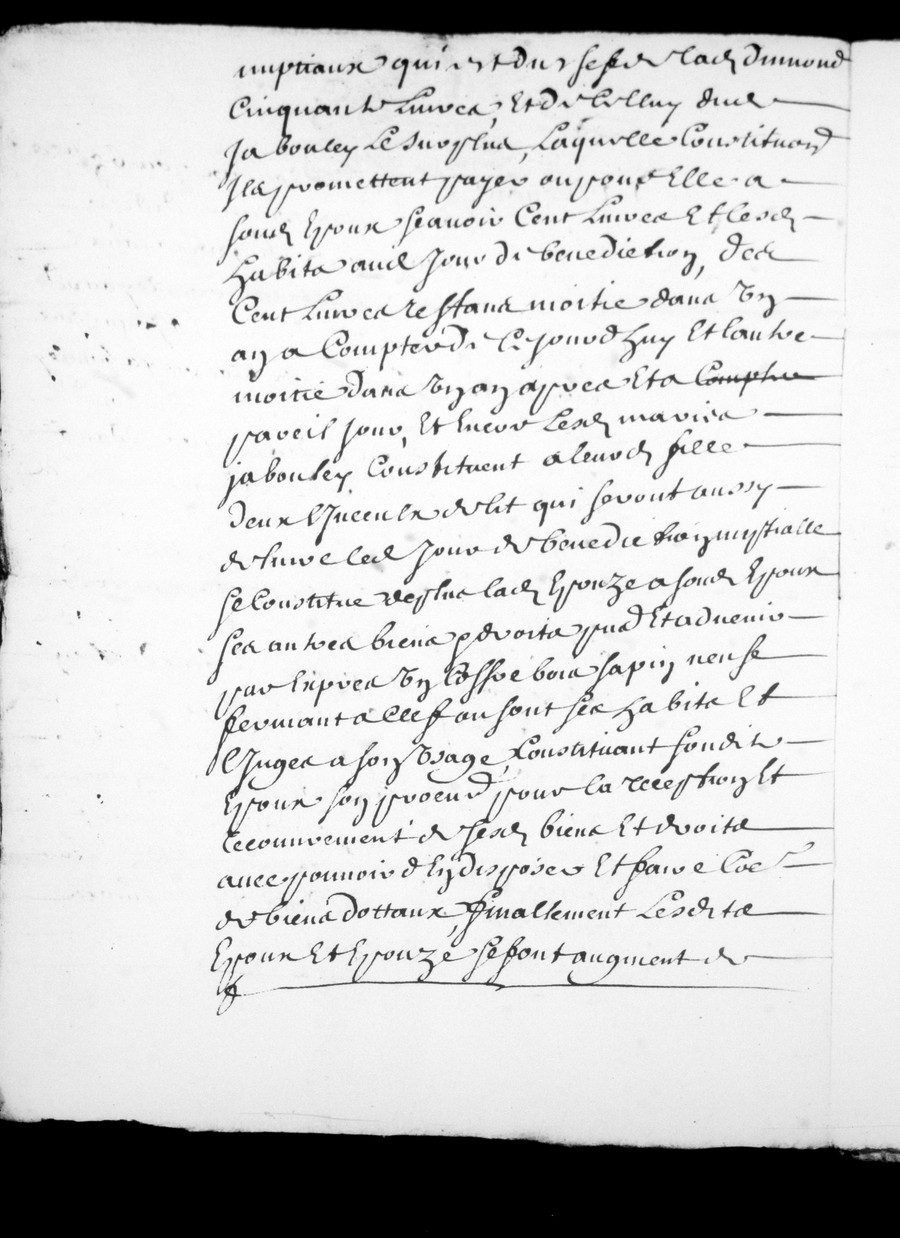 nuptiaux qui est du chef de lad Dumond
Cinquante Livres, Et de Celluy dud
jabouley Le surplus, Laquelle Constituond
Ils promettent payer aupond Elle a
sond Epoux scavoir Cent Livres Et lesd
habits aud Jour de benediction, Des
Cent Livres restans moitie dans un
an a Compter de Ce jourd'huy Et lautre
moitie dans un an apres Et a Compter
pareil jour, Et Encor Lesd maries
jabouley Constituent a leurd fille
deux linceulx de lit qui seront aussy
delivre led Jour de benediction nuptialle
se Constitue deplus lad Epouze a sond Epoux
ses autres biens & droits pnts Et advenir
par Expres un Coffre bois sapin neufe
fermant a Cleff ou sont ses habits Et
linges a son usage, Constituant sondit
Epoux son procur pour la reception Et
recouvrement de sesd biens Et droits
avec pouvoir d'En disposer Et faire Coe
de biens dottaux, finallement Lesdits
Epoux Et Epouze se font augment de